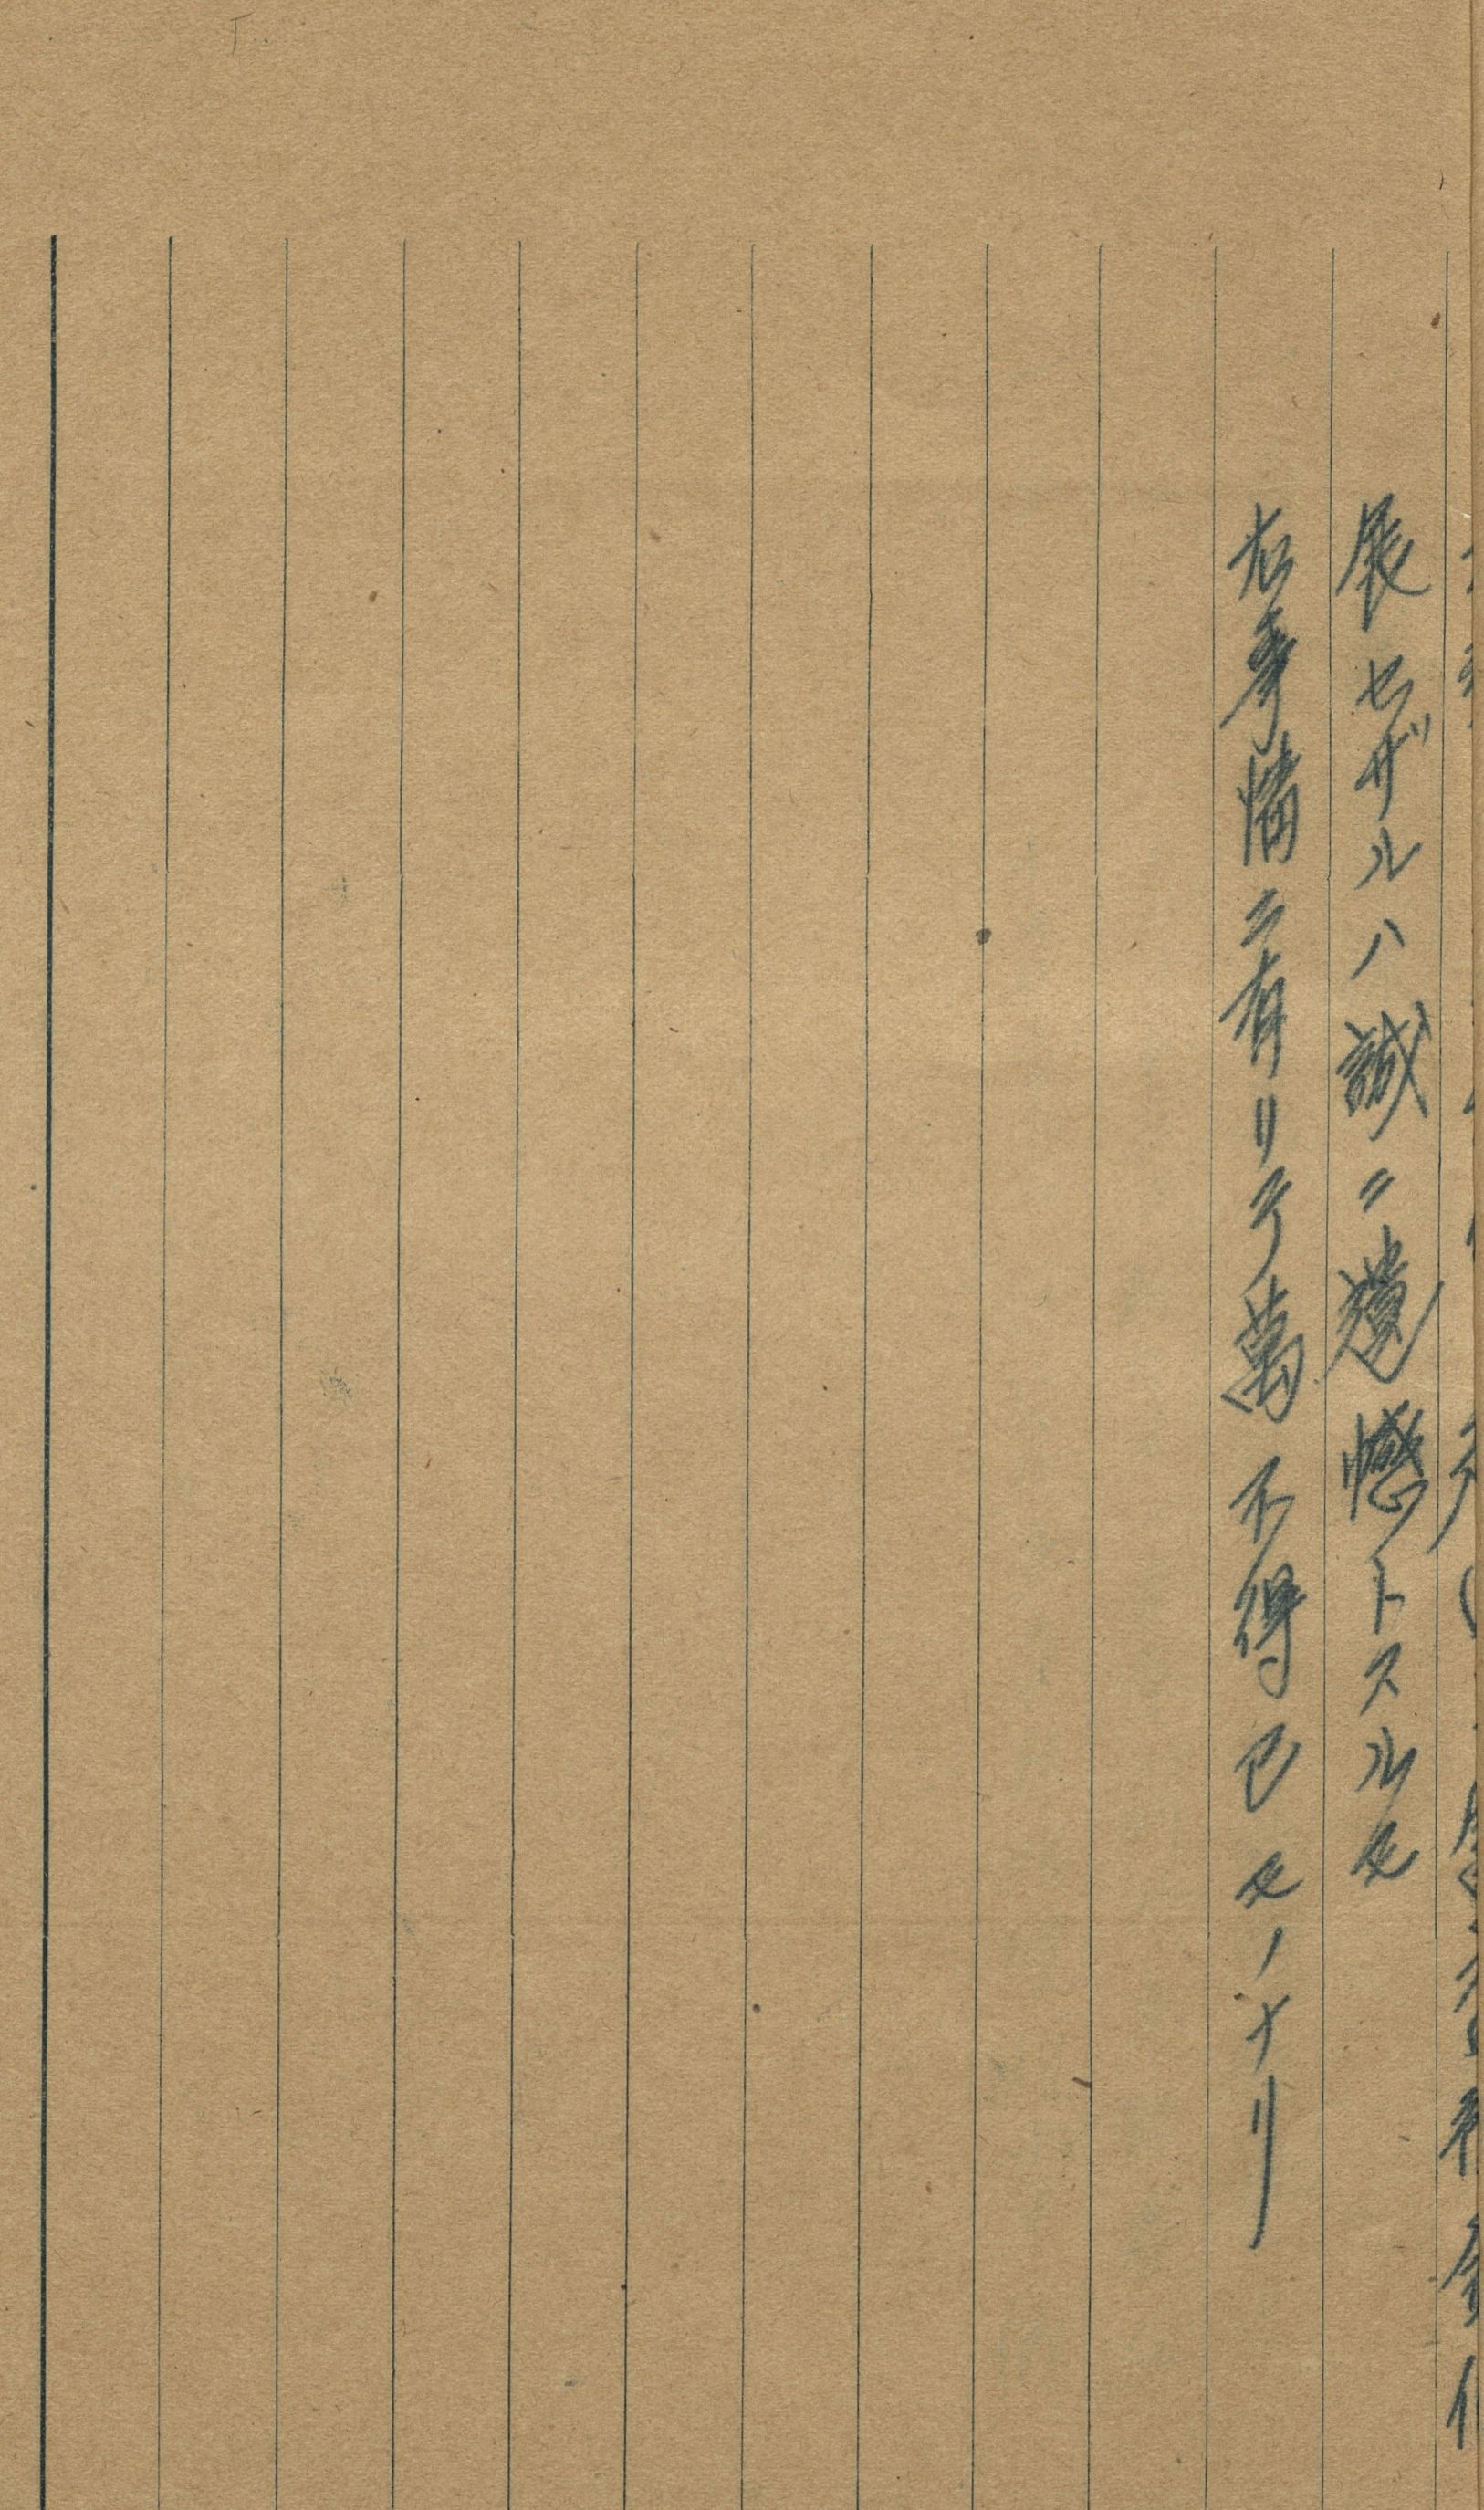 展セザルハ誠ニ遺憾トスルモ
右事情ニ有リテ萬不得已モノナリ